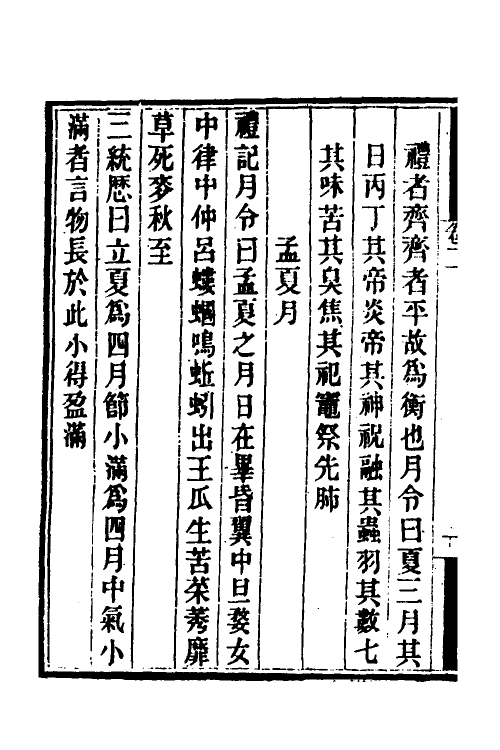 禮者齊齊者平故爲衡也月令曰夏三月其
日丙丁其帝炎帝其神祝融其蟲羽其數七
其味苦其臭焦其祀竈祭先肺
孟夏月
禮記月令曰孟夏之月日在畢昏翼中旦婺女
中律中仲呂螻蟈鳴蚯蚓出王瓜生苦菜莠靡
草死麥秋至
三統歷曰立夏爲四月節小滿爲四月中氣小
滿者言物長於此小得盈滿